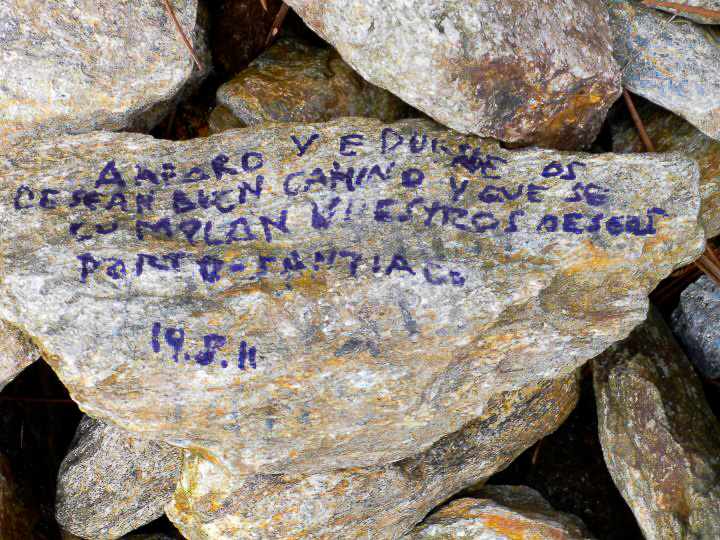 AMPARO Y EDURNE OS
DESEAN BUEN CAMINO Y QUE SE
CUMPLAN VUESTROS DESEOS
PORTO-SANTIAGO
19.8.11